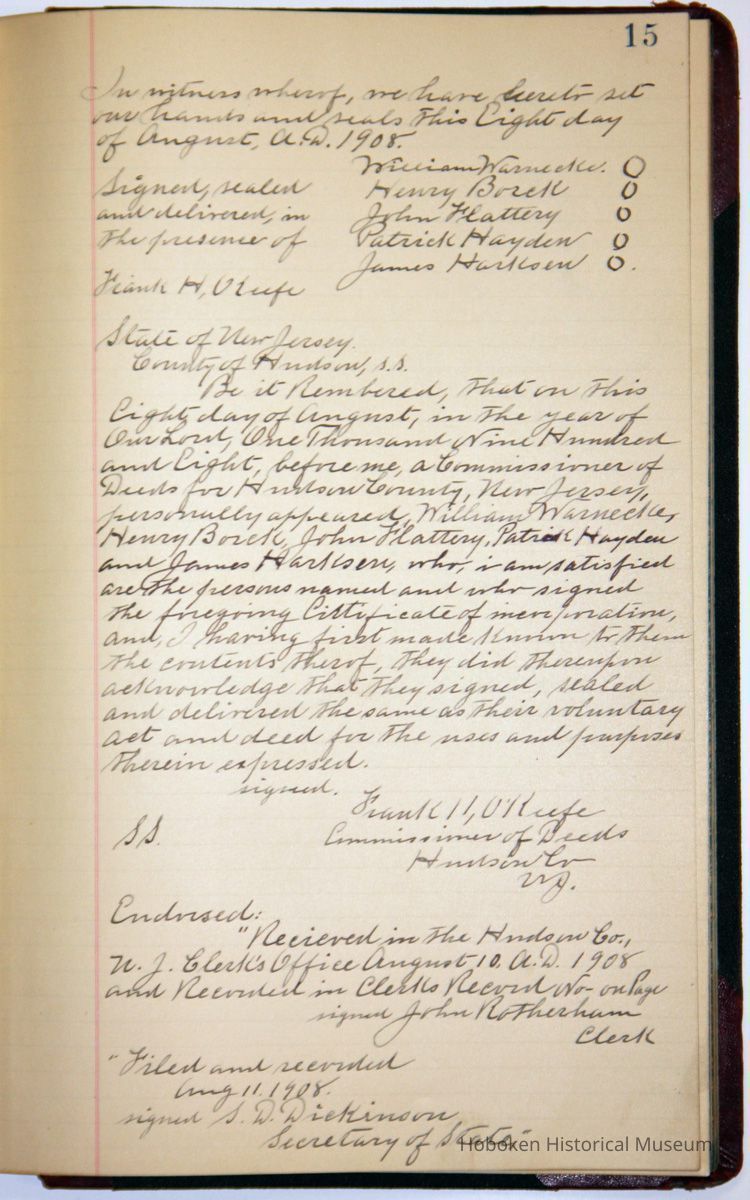 15
In witness wherof, we have hereto set
our hands and seals this Eight day
of August, A.D. 1908.
William Warnecke. O
Signed, sealed Henry Borck O
and delivered, in John Flattery O
the presence of Patrick Hayden O
James Harksen O.
Frank H, O'Keefe
State of New Jersey.
County of Hudson, s.s.
Be it Rembered, that on this
Eight day of August, in the year of
Our Lord, One Thousand Nine Hundred
and Eight, before me, a Commissioner of
Deeds for Hudson County, New Jersey,
personally appeared, William Warnecke,
Henry Borck, John Flattery, Patrick Hayden
and James Harksen, who, i am satisfied
are the persons named and who signed
the foregoing Cirtificate of incorporation,
and, I having first made known to them
the contents therof, they did thereupon
acknowledge that they signed, sealed
and delivered the same as their voluntary
act and deed for the uses and purposes
therein expressed.
signed.
Frank H, O'Keefe
S.S. Commissioner of Deeds
Hudson Co
N.J.
Endorsed:
"Recieved in the Hudson Co.,
N. J. Clerk's Office August 10, A.D. 1908
and Recorded in Clerks Record No- on Page
signed John Rotherham
Clerk
"Filed and recorded
Aug 11. 1908.
signed S. D. Dickinson
Secretary of State"
Hoboken Historical Museum